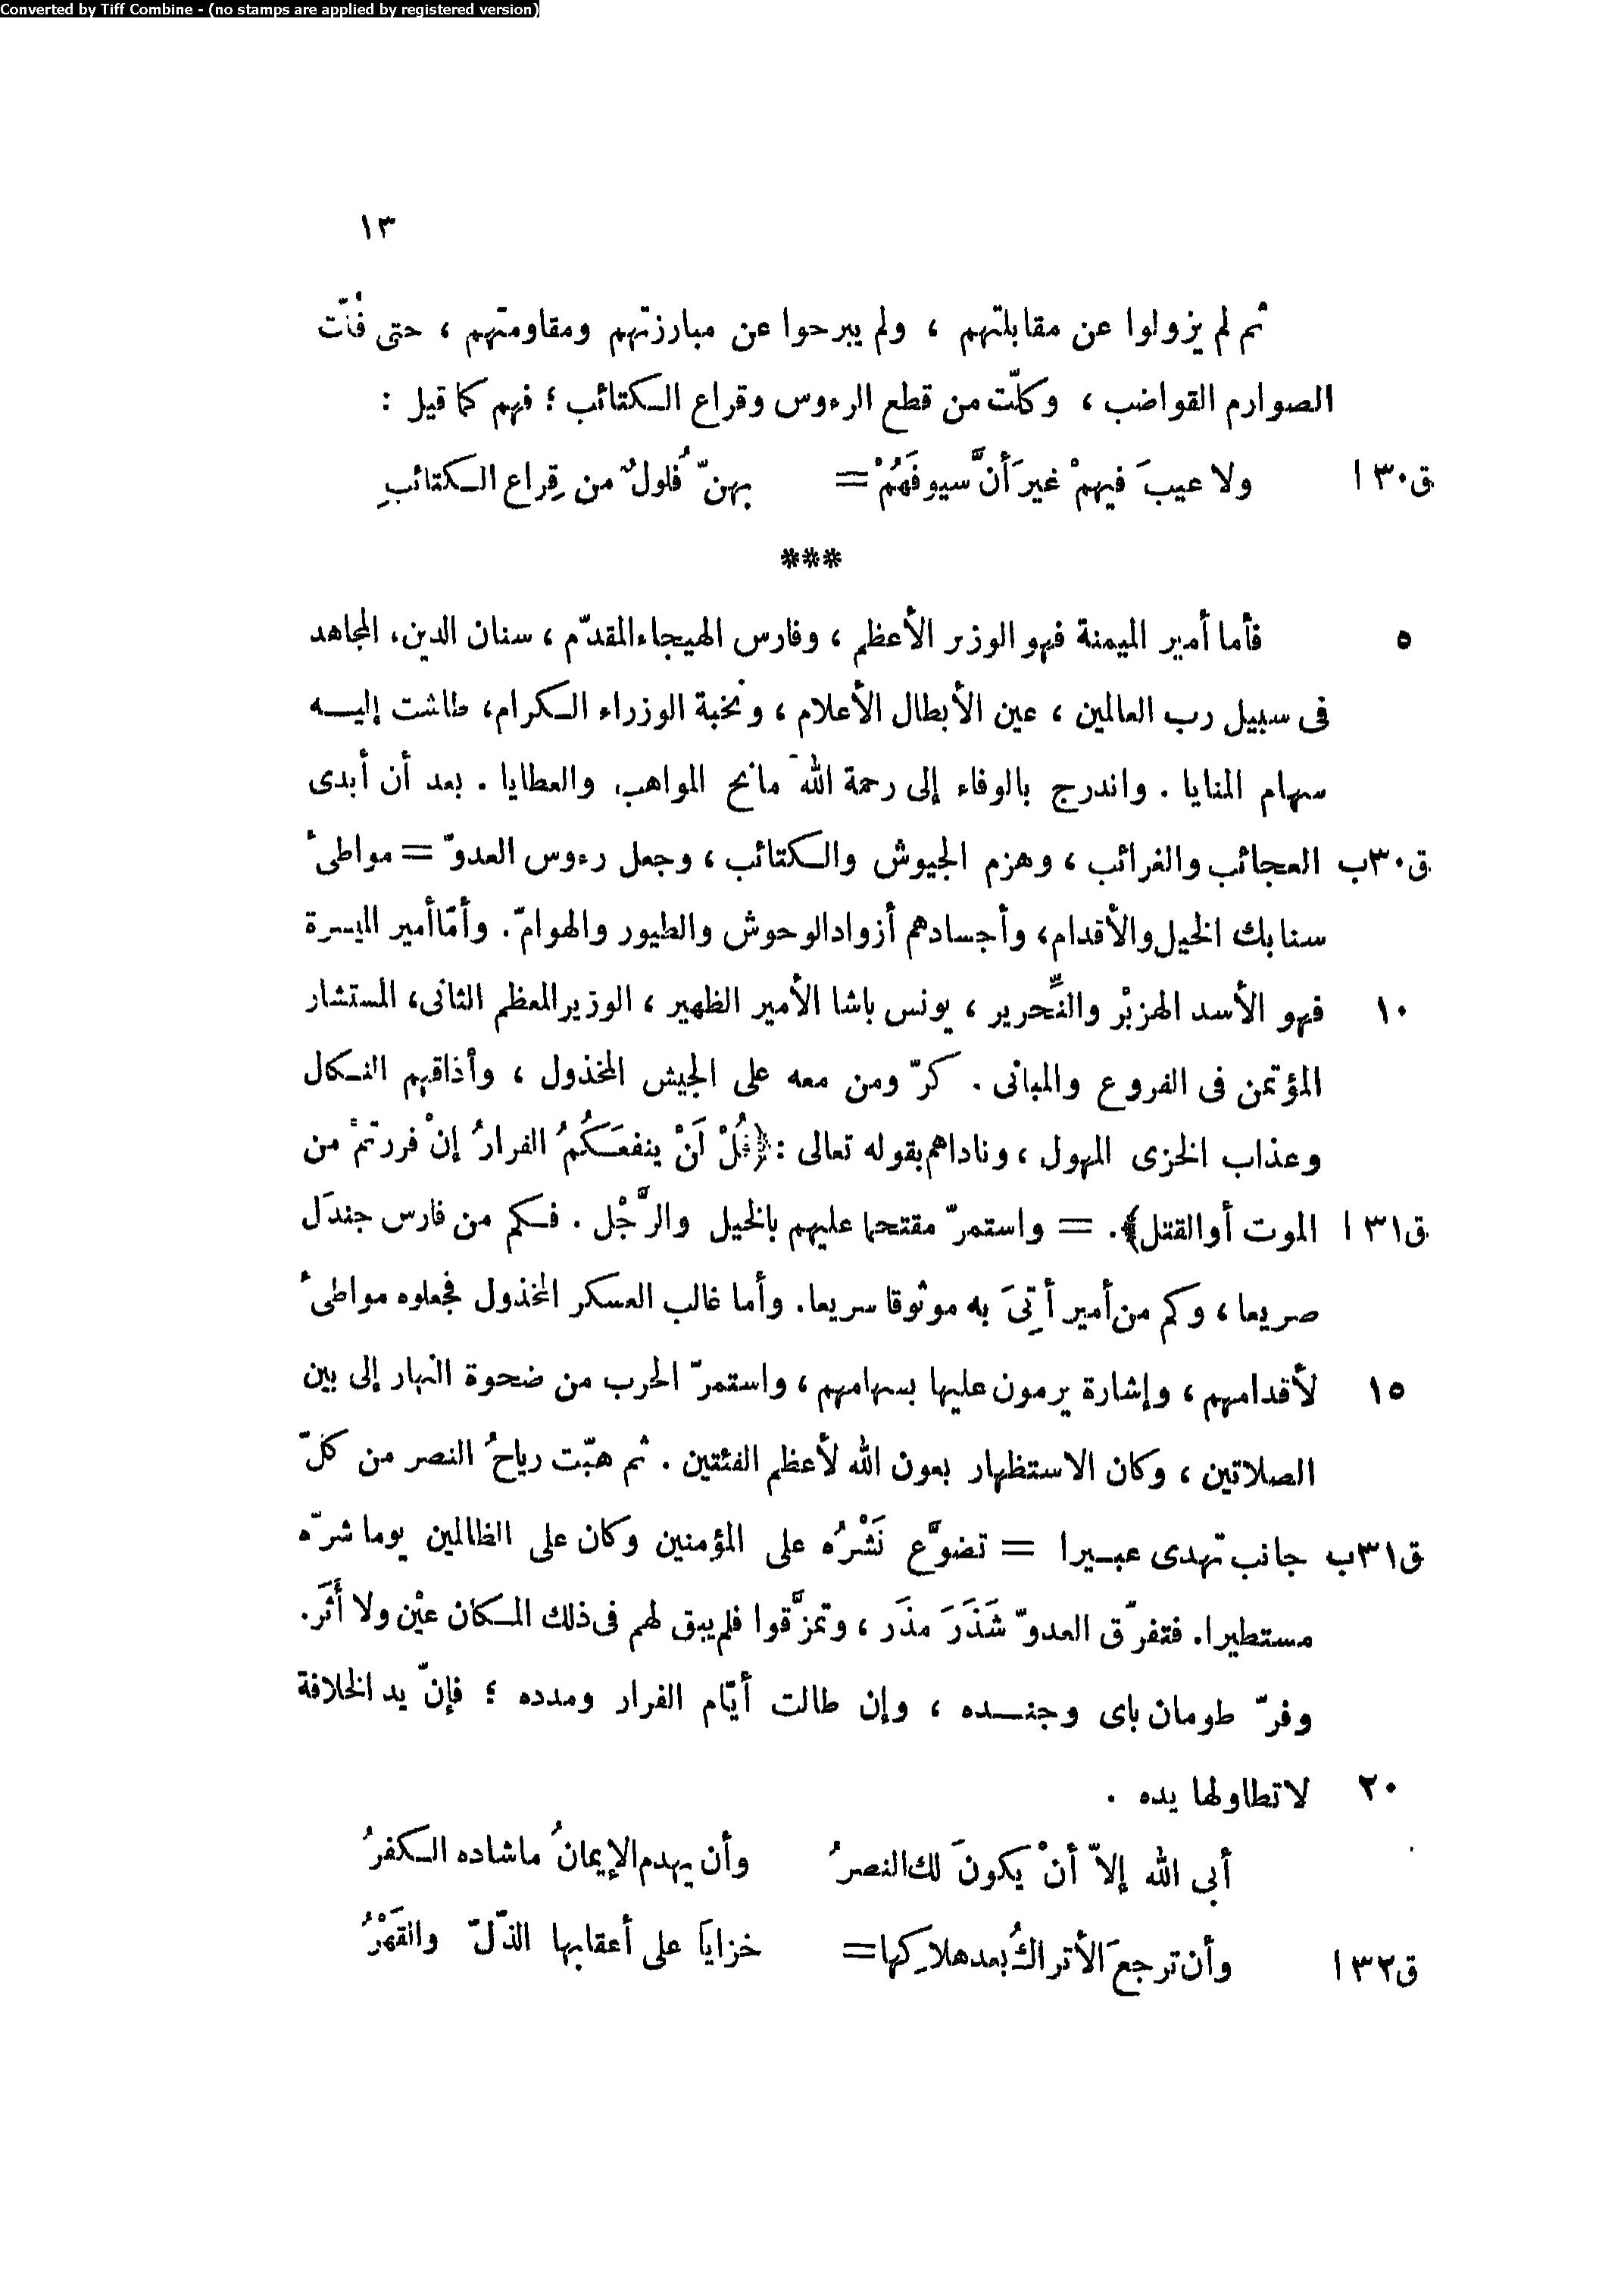 Converted by Tiff Combine - (no stamps are applied by registered version)
١٣
ثم لم يزولوا عن مقابلتهم ، ولم يبرحوا عن مبارزتهم ومقاومتهم ، حتى فُلّت
الصوارم القواضب ، وكلّت من قطع الرءوس وقراع الكتائب ؛ فهم كما قيل :
ق٣٠ ا ولا عيبَ فيهمْ غيرَ أنَّ سيوفَهُمْ = بهنّ ُفلولٌ من قِراع الكتائبِ
***
٥ فأما أمير الميمنة فهو الوزير الأعظم ، وفارس الهيجاء المقدّم ، سنان الدين، المجاهد
فى سبيل رب العالمين ، عين الأبطال الأعلام ، ونخبة الوزراء الكرام، طاشت إليه
سهام المنايا . واندرج بالوفاء إلى رحمة الله مانح المواهب والعطايا . بعد أن أبدى
ق٣٠ب العجائب والغرائب ، وهزم الجيوش والكتائب ، وجعل رءوس العدوّ = مواطىُٔ
سنابك الخيل والأقدام، وأجسادهم أزواد الوحوش والطيور والهوامّ. وأمّا أمير الميسرة
١٠ فهو الأسد الهزبْر والنِّحرير ، يونس باشا الأمير الظهير ، الوزير المعظم الثانى، المستشار
المؤتمن فى الفروع والمبانى . كرّ ومن معه على الجيش المخذول ، وأذاقهم النكال
وعذاب الخزى المهول ، وناداهم بقوله تعالى : ﴿قُلْ لَنْ ينفعَكُمُ الفرارُ إنْ فررتمْ من
ق٣١ ا الموت أو القتل﴾. = واستمرّ مقتحما عليهم بالخيل والرَّجْل . فكم من فارس جندَل
صريعا ، وكم من أمير أُتِىَ به موثوقا سريعا. وأما غالب العسكر المخذول فجعلوه مواطىُٔ
١٥ لأقدامهم ، وإشارة يرمون عليها بسهامهم ، واستمرّ الحرب من ضحوة النهار إلى بين
الصلاتين ، وكان الاستظهار بعون الله لأعظم الفئتين . ثم هبّت رياحُ النصر من كلّ
ق٣١ب جانب تهدى عبيرا = تضوَّع نَشْرُه على المؤمنين وكان على الظالمين يوما شرّه
مستطيرا. فتفرّق العدوّ شَذَرَ مذَر ، وتمزَّقوا فلم يبق لهم فى ذلك المكان عيْن ولا أَثَر.
وفرّ طومان باى وجنده ، وإن طالت أيّام الفرار ومدده ؛ فإنّ يد الخلافة
٢٠ لاتطاولها يده .
أبى الله إلاّ أنْ يكونَ لك النصرُ وأن يهدم الإيمانُ ماشاده الكفرُ
ق٣٢ ا وأن ترجعَ الأتراكُ بعد هلاكِها = خزايا على أعقابها الذّلّ والقَهْرُ